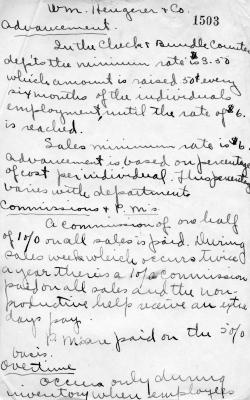 Wm. Hengerer & Co.
1503
Advancement.
In the Check & Bundle Counter
dep'ts the minimum rate $3.50
which amount is raised 50¢ every
six months of the individuals
employment, until the rate of $6.
is reached.
Sales minimum rate is $6.
Advancement is based on percentage
of cost per individual. This percentage
varies with department
Commissions & P.M's.
A commission of one half
of 1% on all sales is paid. During
sales week which occurs twice
a year there is a 1% commission
paid on all sales and the non-
productive help receive an extra
days pay.
P.M's are paid on the 5%
basis.
Overtime
Occurs only during
inventory when employees